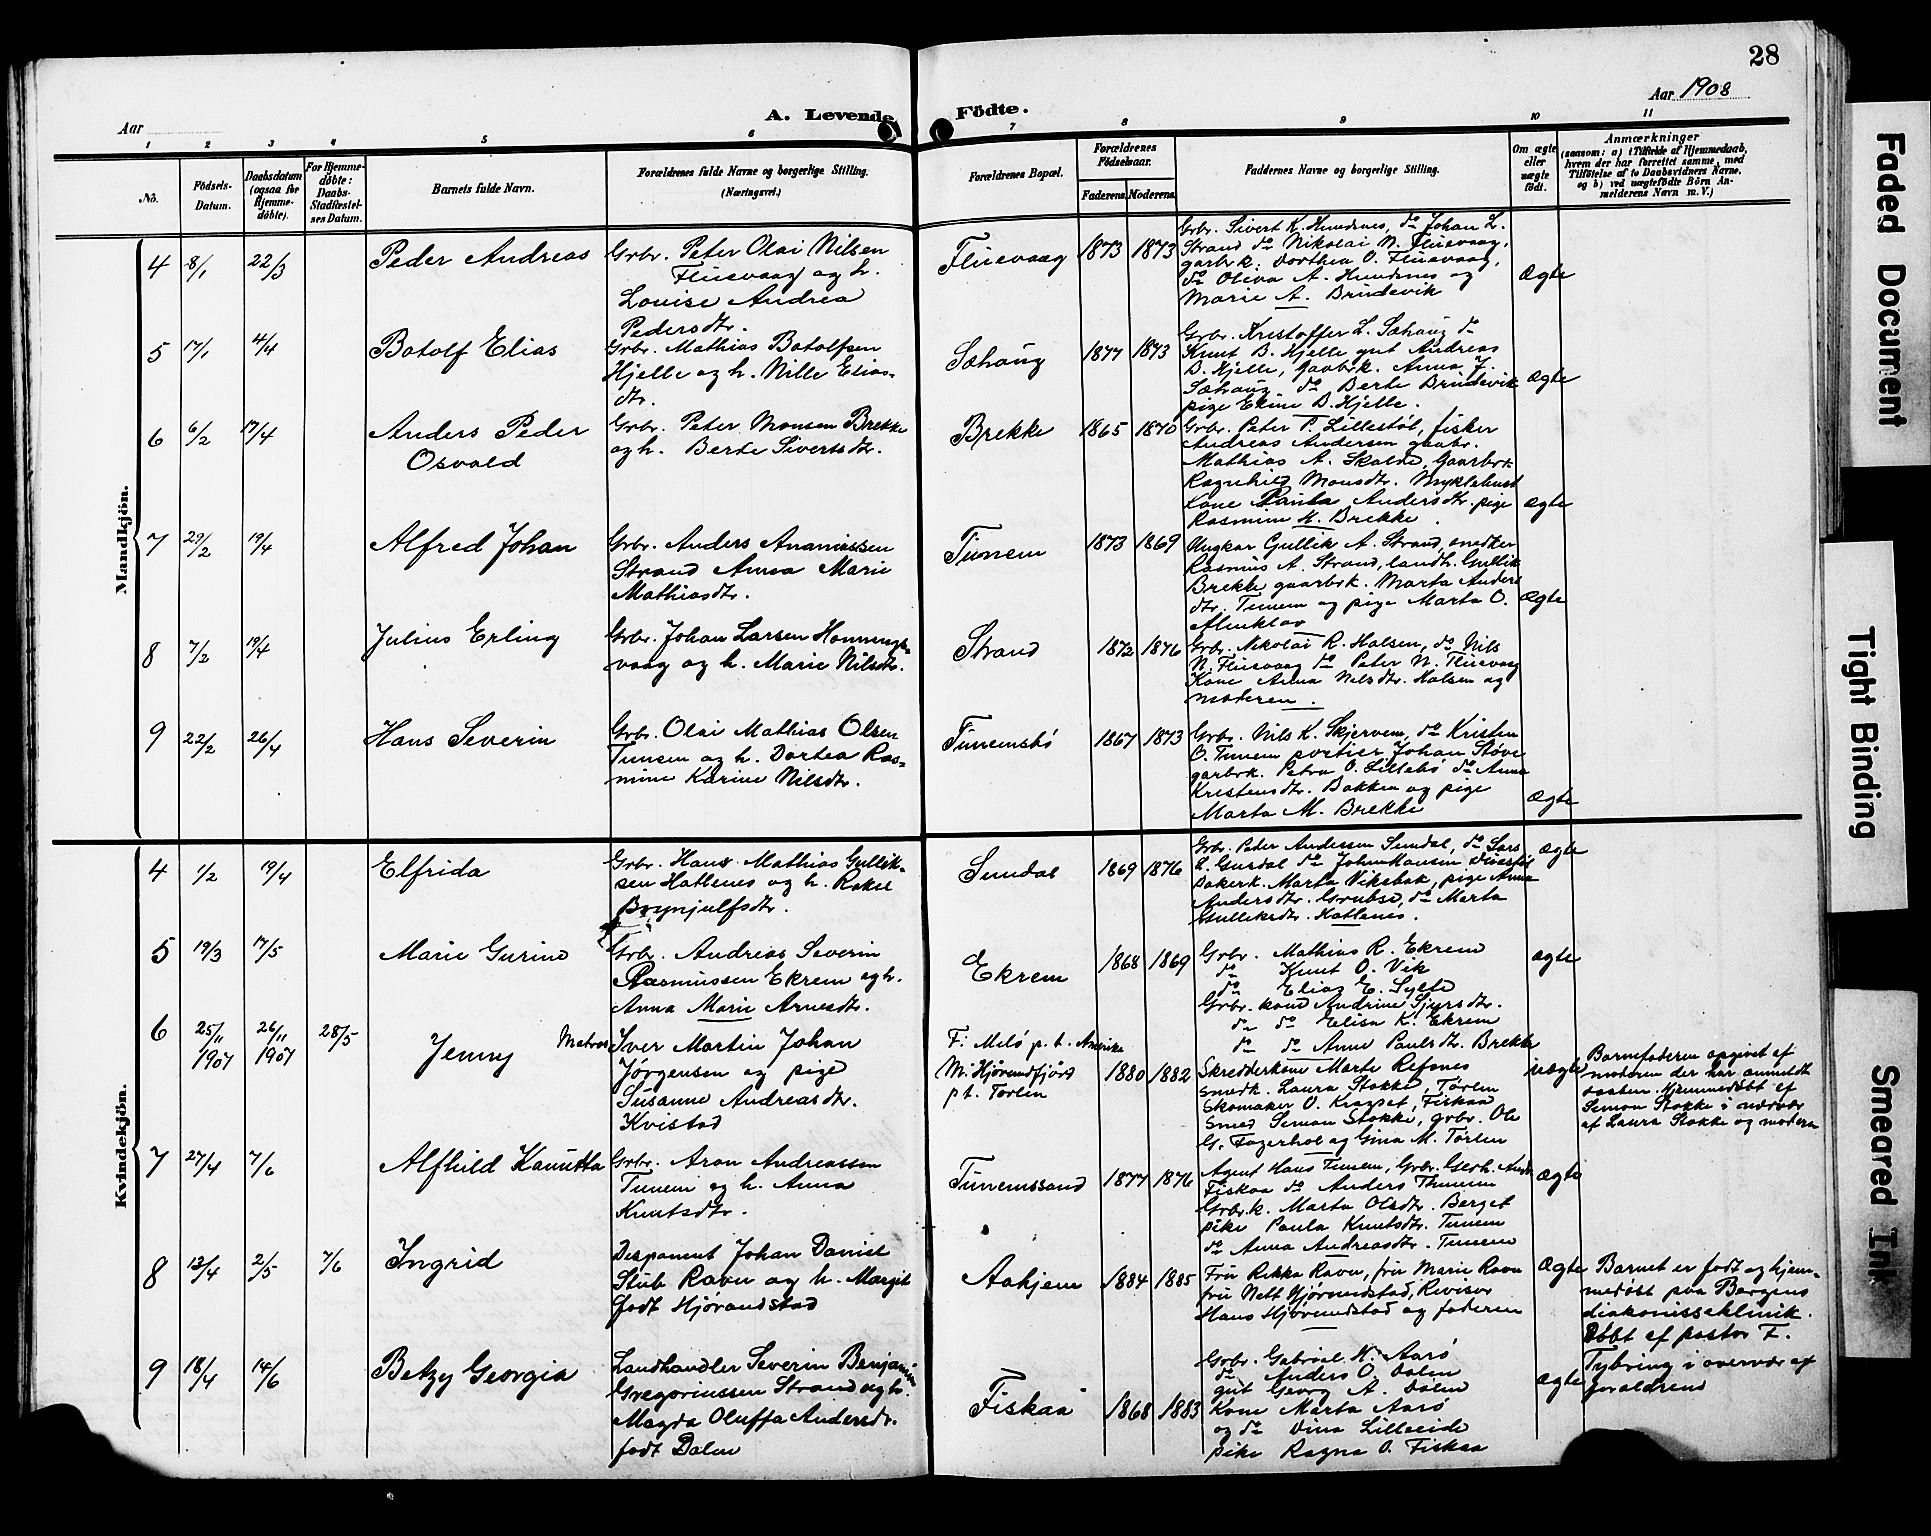 28
Aar
A. Levende Födte.
Aar 1908
1 2 3 4 5 6 7 8 9 10 11
No.
Födsels-
Datum.
Daabsdatum
(ogsaa for
Hjemme-
døbte).
For Hjemme-
døbte:
Daabs-
Stadfæstel-
ses Datum.
Barnets fulde Navn.
Forældrenes fulde Navne og borgerlige Stilling.
(Næringsvei.)
Forældrenes Bopæl.
Forældrenes
Födselsaar.
Faderens. Moderens.
Faddernes Navne og borgerlige Stilling.
Om ægte
eller
uægte
födt.
Anmærkninger
(saasom: a) i Tilfælde af Hjemmedaab,
hvem der har forrettet samme, med
Tilföielse af to Daabsvidners Navne,
og b) ved uægtefödte Börn An-
melderens Navn m. V.)
Mandkjön.
4 8/1 22/3 Peder Andreas
Grbr. Peter Olai Nilsen
Fluevaag og h.
Louise Andrea
Pedersdtr.
Fluevaag 1873 1873
Grbr. Sivert K. Hundnes, do Johan L.
Strand do Nikolai N. Fluevaag,
garbrk. Dorthea O. Fluevaag,
do Oliva A. Hundnes og
Marie A. Brudevik
Ægte
5 17/1 4/4 Botolf Elias
Grbr. Mathias Botolfsen
Hjelle og h. Nille Elias-
dtr.
Sæhaug 1877 1873
Grbr. Kristoffer L. Sæhaug do
Knut B. Hjelle gut Andreas
B. Hjelle, Gaarbrk. Anna J.
Sæhaug do Berte Brudevik
pige Eline B. Hjelle.
Ægte
6 6/2 17/4 Anders Peder
Osvald
Grbr. Peter Monsen Brekke
og h. Berte Sivertsdtr.
Brekke 1865 1870
Grbr. Peter P. Lillestøl, fisker
Andreas Andersen gaabr.
Mathias A. Skalde, Gaarbrk
Ragnhild Monsdtr. Myklebust
Kone Paula Andersdtr. pige
Rasmine M. Brekke.
Ægte
7 29/2 19/4 Alfred Johan
Grbr. Anders Ananiassen
Strand Anna Marie
Mathiasdtr.
Tunem 1873 1869
Ungkar Gullik A. Strand, snedker
Rasmus A. Strand, landh. Gullik
Brekke gaarbrk. Marta Anders
dtr. Tunem og pige Marta O.
Ægte
8 7/2 19/4 Julius Erling
Grbr. Johan Larsen Honningds-
vaag og h. Marie Nilsdtr.
Strand 1872 1876
Grbr. Nikolai R. Halsen, do Nils
N. Fluevaag do Peter N. Fluevaag
Kone Anna Nilsdtr. Halsen og
moderen.
9 22/2 26/4 Hans Severin
Grbr. Olai Mathias Olsen
Tunem og h. Dortea Ras-
mine Karine Nilsdtr.
Tunemsbø 1867 1873
Grbr. Nils K. Skjervem, do Kristen
O. Tunem portier Johan Støve
garbrk. Petra O. Lillebø do Anna
Kristensdtr. Bakken og pige
Marta M. Brekke
Ægte
Kvindekjön.
4 1/2 19/4 Elfrida
Grbr. Hans Mathias Gullik-
sen Hatlenes og h. Rakel
Brynjulfsdtr.
Sundal 1869 1876
Grbr. Peter Andersen Sundal, do Lars
L. Gusdal do Johan Hansen
Bakerk. Marta Viksbak, pige Anna
Andersdtr. Grubse, do Marta
Gulliksdtr. Hatlenes.
Ægte
5 19/3 17/5 Marie Gurine
Grbr. Andreas Severin
Rasmussen Ekrem og h.
Anna Marie Arnesdtr.
Ekrem 1868 1869
Grbr. Mathias R. Ekrem
do Knut O. Vik
do Elias E. Sylte
Grbr. kone Andrine Sjursdtr.
do do Elisa K. Ekrem
do do Anne Paulsdtr. Brekke
ægte
6 25/11 1907 26/11 1907 28/5 Jenny
Matros Iver Martin Johan
Jørgensen og pige
Susanne Andreasdtr.
Kvistad
F. Melø p.t. Amerika
M. Hjørundfjord
p t. Torlen
1880 1882
Skredderkone Marte Refsnes
smedk. Laura Stokke, Tørlen
Skomaker O. Kragset, Fiskaa
Smed Simon Stokke, grbr. Ole
G. Fagerhol og Gina M. Tørlen
uægte
Barnefaderen opgivet af
moderen der har anmeldt
saaken. Hjemmedøbt af
Simon Stokke i nærvær
af Laura Stokke og modern
7 27/4 7/6 Alfhild Kanutta
Grbr. Aron Andreassen
Tunem og h. Anna
Knutsdtr.
Tunemssand 1877 1876
Agent Hans Tunem, Grbr. Gerh. Andr.
Fiskaa do Anders Thunem
Grbr.k. Marta Olsdtr. Berget
pike Paula Knutsdtr. Tunem
do Anna Andreasdtr. Tunem
Ægte
8 13/4 2/5 7/6 Ingrid
Disponent Johan Daniel
Stub Ravn og h. Margit
født Hjørandstad
Aahjem 1884 1885
Fru Rikka Ravn, fru Marie Ravn
fru Nett Hjørundstad, Revisor
Hans Hjørundstad og faderen
Ægte
Barnet er født og hjem-
medøbt paa Bergens
diakonisseklinik.
Døbt af pastor F.
Tybring i overvær af
foraldrene
9 18/4 14/6 Betzy Georgia
Landhandler Severin Benjamin
Gregoriussen Strand og h.
Magda Oluffa Andersdr.
født Dalen
Fiskaa 1868 1883
Grbr. Gabriel N. Aarø
do Anders O. Dalen
gut Georg A. Dalen
Kone Marta Aarø
og do Dina Lilleeide
pike Ragna O. Fiskaa
ægte
Faded Document
Tight Binding
Smeared Ink